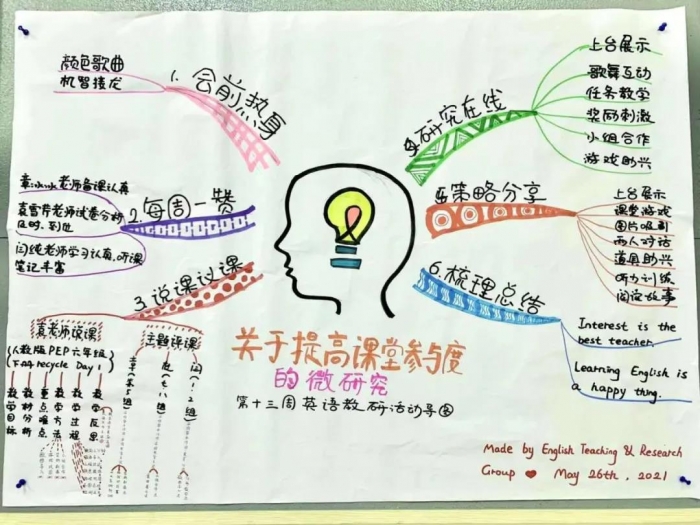 颜色歌曲
机智接龙
1. 会前热身
袁冰冰老师备课认真
袁雪芹老师试卷分析
及时、到位
闫纯老师学习认真、听课
笔记丰富
2. 每周一赞
3. 说课议课
袁老师说课
(人教版PEP六年级
下册recycle Day 1
教学目标
教材分析
重点难点
教学方法
教学过程
教学反思
主题评课
4. 研究在线
上台展示
歌舞互动
任务教学
奖励刺激
小组合作
游戏助兴
5. 策略分享
上台展示
课堂游戏
图片吸引
两人对话
道具助兴
听力训练
阅读故事
6. 梳理总结
Interest is the
best teacher.
Learning English is
a happy thing.
关于提高课堂参与度
的微研究
第十三周英语教研活动导图
Made by English Teaching & Research
Group May 26th, 2021